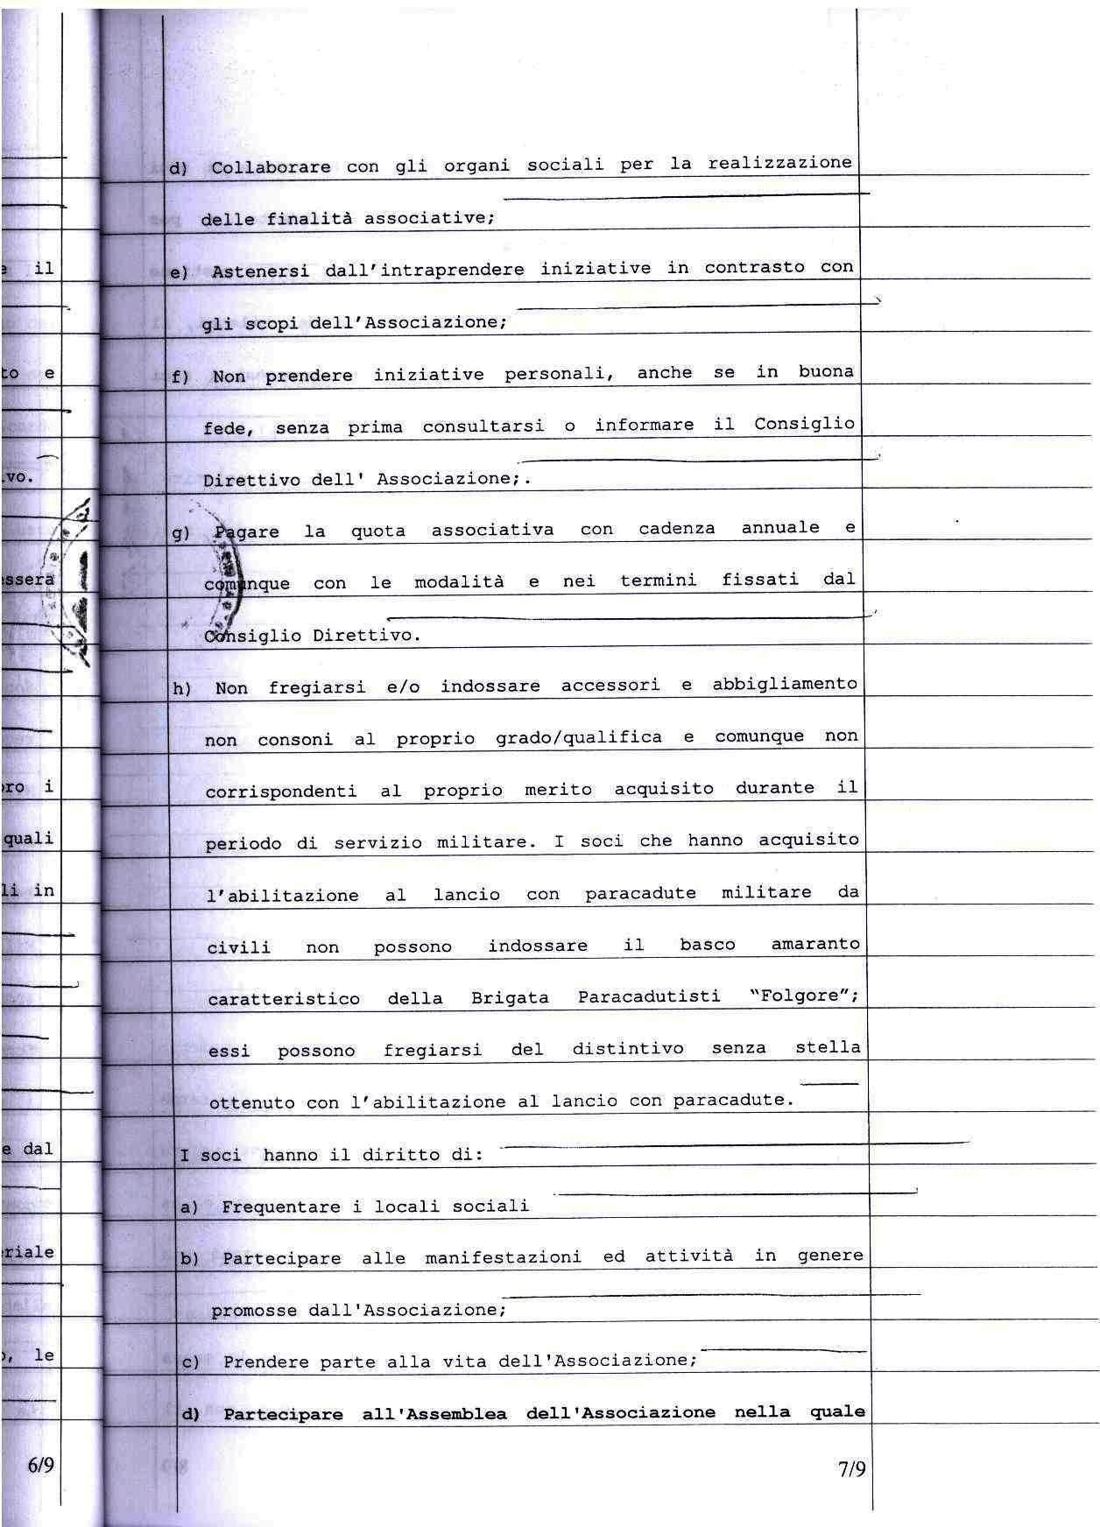 e il
to e
vo.
essera
oro i
quali
li in
e dal
riale
, le
6/9
d) Collaborare con gli organi sociali per la realizzazione
delle finalità associative;
e) Astenersi dall'intraprendere iniziative in contrasto con
gli scopi dell'Associazione;
f) Non prendere iniziative personali, anche se in buona
fede, senza prima consultarsi o informare il Consiglio
Direttivo dell' Associazione;.
g) Pagare la quota associativa con cadenza annuale e
comunque con le modalità e nei termini fissati dal
Consiglio Direttivo.
h) Non fregiarsi e/o indossare accessori e abbigliamento
non consoni al proprio grado/qualifica e comunque non
corrispondenti al proprio merito acquisito durante il
periodo di servizio militare. I soci che hanno acquisito
l'abilitazione al lancio con paracadute militare da
civili non possono indossare il basco amaranto
caratteristico della Brigata Paracadutisti "Folgore";
essi possono fregiarsi del distintivo senza stella
ottenuto con l'abilitazione al lancio con paracadute.
I soci hanno il diritto di:
a) Frequentare i locali sociali
b) Partecipare alle manifestazioni ed attività in genere
promosse dall'Associazione;
c) Prendere parte alla vita dell'Associazione;
d) Partecipare all'Assemblea dell'Associazione nella quale
7/9